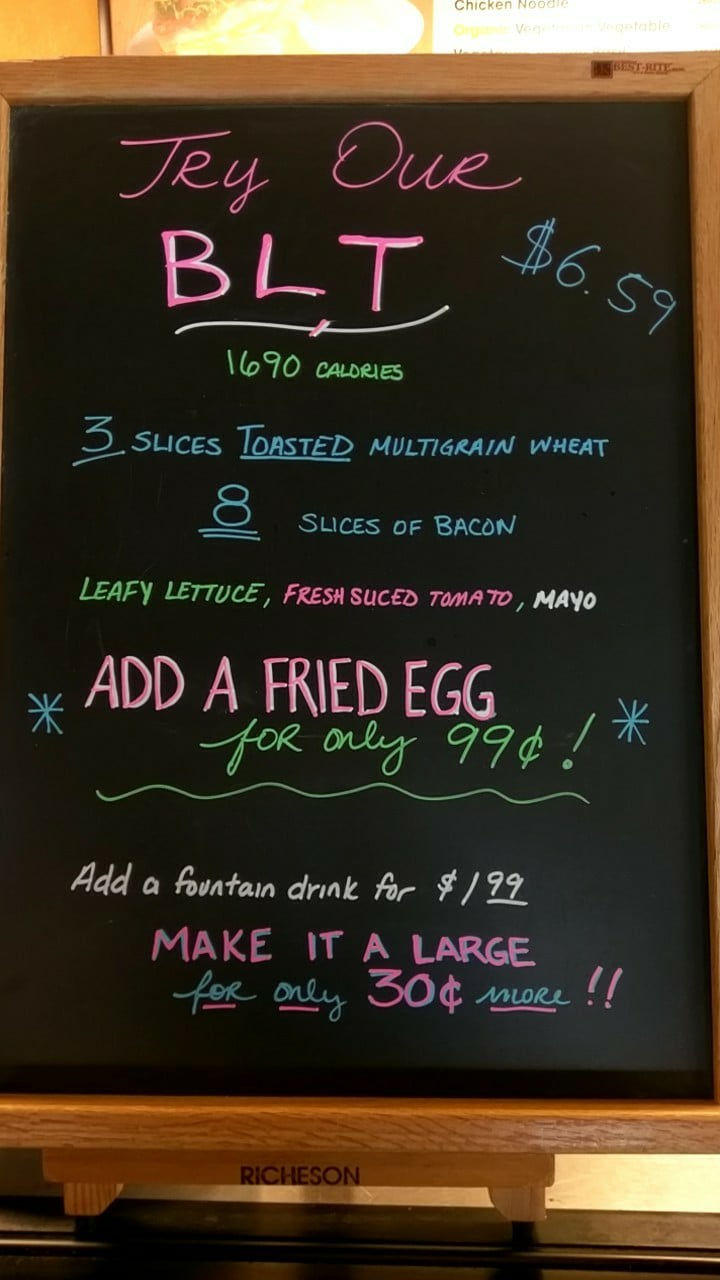 Chicken Noodle
Organic Vegetarian Vegetable
BEST-RITE
Try Our
BLT
$6.59
1690 CALORIES
3 SLICES TOASTED MULTIGRAIN WHEAT
8 SLICES OF BACON
LEAFY LETTUCE, FRESH SLICED TOMATO, MAYO
* ADD A FRIED EGG *
for only 99¢!
Add a fountain drink for $1 99
MAKE IT A LARGE
for only 30¢ more!!
RICHESON